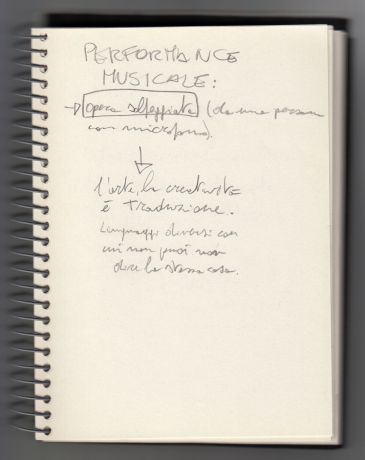 PERFORMANCE
MUSICALE:
→ opera solfeggiata (da una persona
con microfono).
↓
l'arte, la creatività
è traduzione.
Linguaggi diversi con
cui non puoi non
dire la stessa cosa.